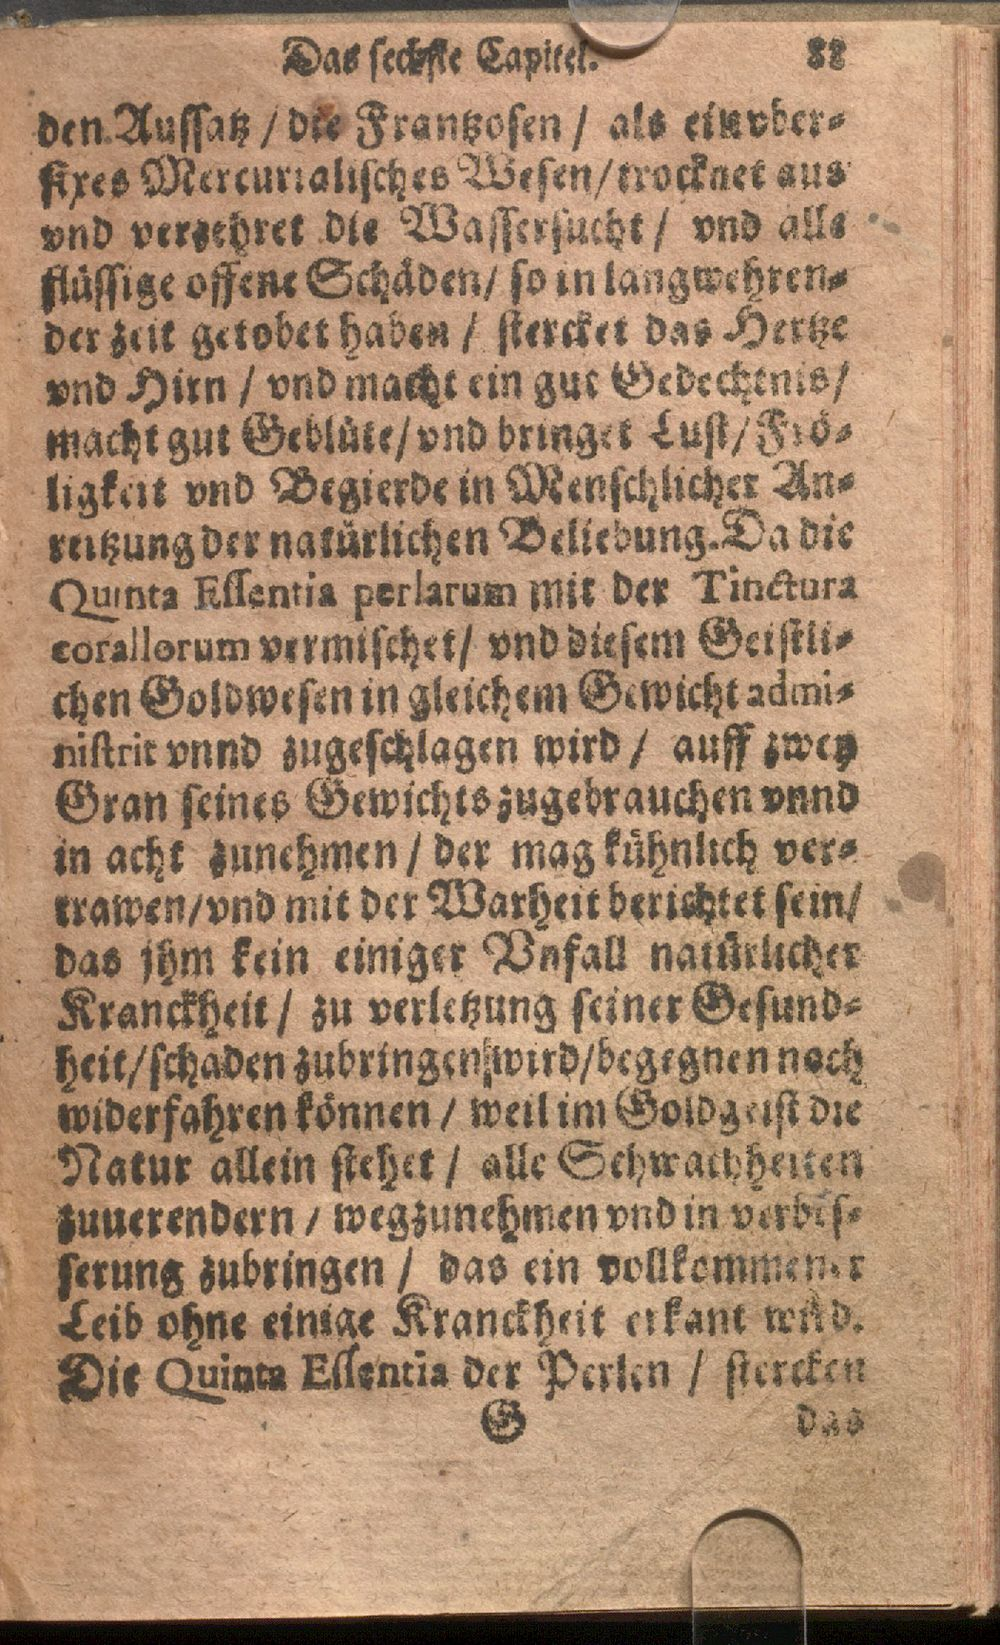 Das sechste Capitel. 88
den Aussatz / die Frantzosen / als ein vber-
fixes Mercurialisches Wesen/ trocknet aus
vnd verzehret die Wassersucht / vnd alle
flüssige offene Schäden/ so in langwehren-
der zeit getobet haben / stercket das Hertze
vnd Hirn / vnd macht ein gut Gedechtnis/
macht gut Geblüte/ vnd bringet Lust/ Frö-
ligkeit vnd Begierde in Menschlicher An-
reitzung der natürlichen Beliebung. Da die
Quinta Essentia perlarum mit der Tinctura
corallorum vermischet/ vnd diesem Geistli-
chen Goldwesen in gleichem Gewicht admi-
nistrit vnnd zugeschlagen wird / auff zwey
Gran seines Gewichts zugebrauchen vnnd
in acht zunehmen / der mag kühnlich ver-
trawen/ vnd mit der Warheit berichtet sein/
das jhm kein einiger Vnfall natürlicher
Kranckheit / zu verletzung seiner Gesund-
heit/ schaden zubringen wird/ begegnen noch
widerfahren können / weil im Goldgeist die
Natur allein stehet / alle Schwachheiten
zuuerendern / wegzunehmen vnd in verbes-
serung zubringen / das ein vollkommener
Leib ohne einige Kranckheit erkant wird.
Die Quinta Essentia der Perlen / stercken
G das